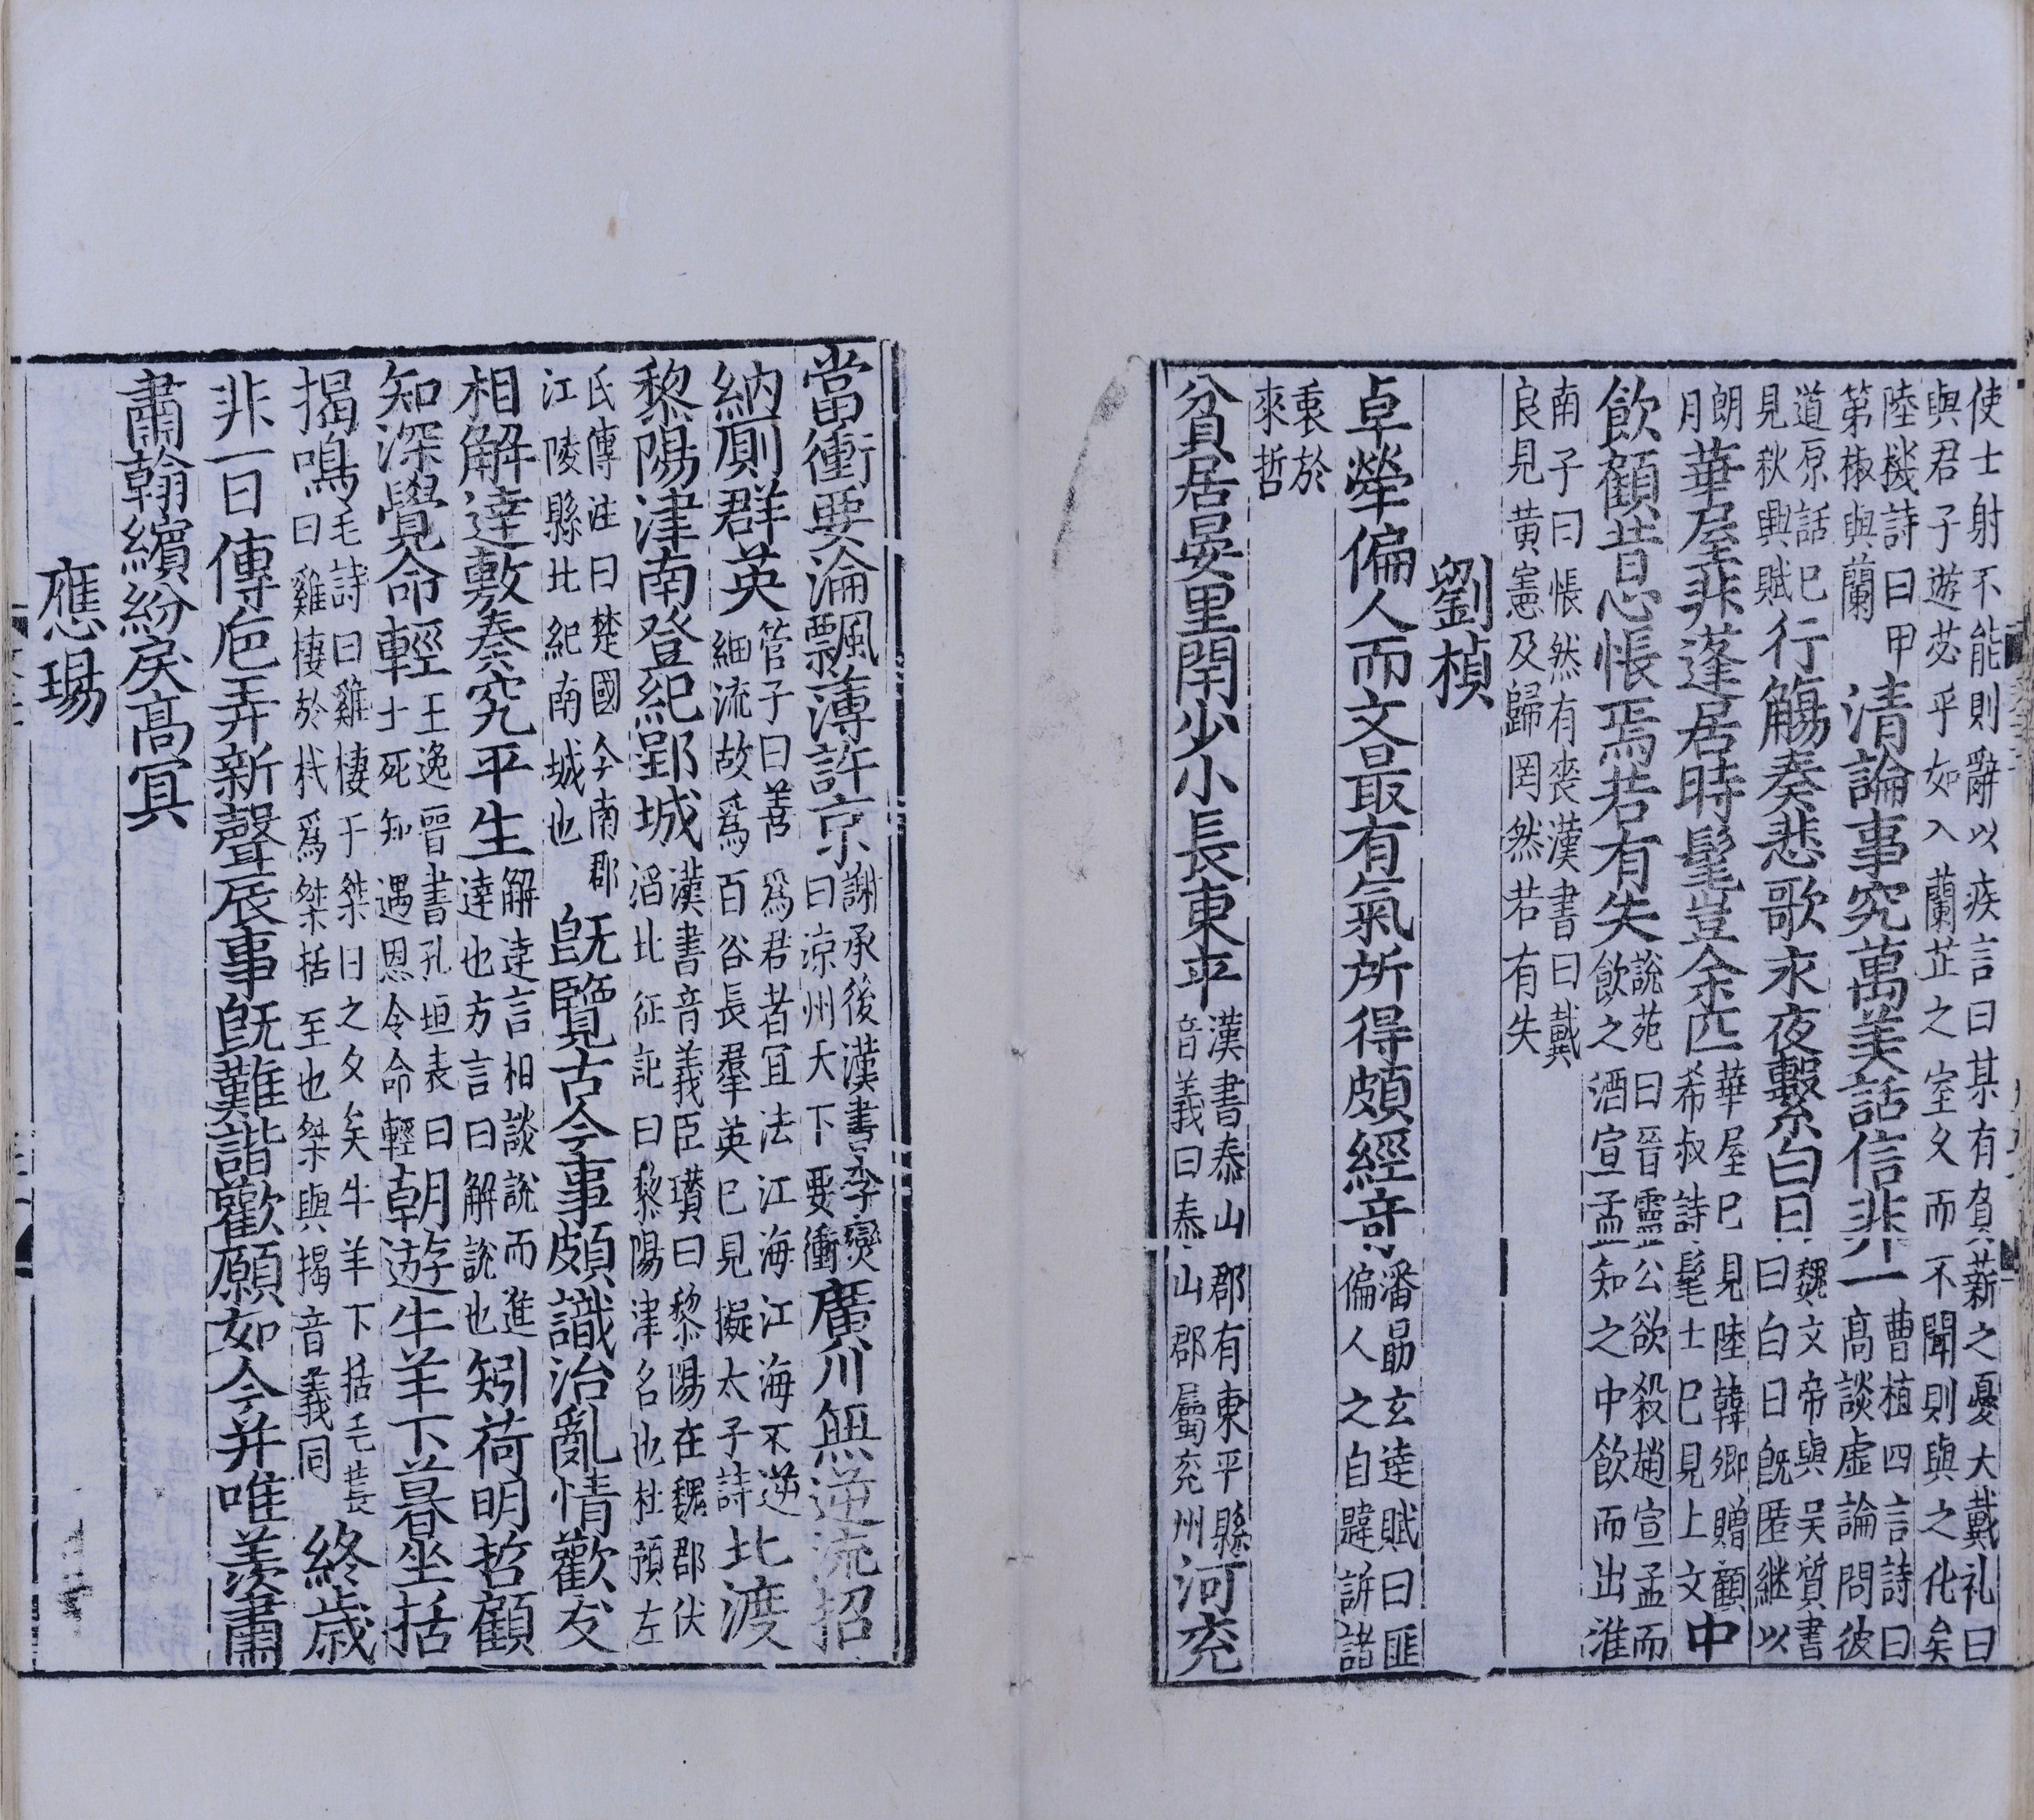 使士射不能則辭以疾言曰某有負薪之憂大戴礼曰
與君子遊苾乎如入蘭芷之室久而不聞則與之化矣
陸機詩曰甲
第椒與蘭
清論事究萬美話信非一
曹植四言詩曰
高談虛論問彼
道原話已
見秋興賦
行觴奏悲歌永夜繫白日
魏文帝與吴質書
曰白日既匿継以
朗
月
華屋非蓬居時髦豈余匹
華屋已見陸韓卿贈顧
希叔詩髦士已見上文
中
飲顧昔心悵焉若有失
說苑曰晉靈公欲殺趙宣孟而
飲之酒宣孟知之中飲而出淮
南子曰悵然有喪漢書曰戴
良見黃憲及歸罔然若有失
劉楨
卓犖偏人而文最有氣所得頗經竒
潘勗玄逹賦曰匪
偏人之自韙訴諸
衷於
來哲
貧居晏里閈少小長東平
漢書泰山郡有東平縣
音義曰泰山郡屬兖州
河兖
當衝要淪飄薄許京
謝承後漢書李變
曰涼州天下要衝
廣川無逆流招
納厠群英
管子曰善爲君者冝法江海江海不逆
細流故爲百谷長羣英已見擬太子詩
北渡
黎陽津南登紀郢城
漢書音義臣瓉曰黎陽在魏郡伏
滔北征記曰黎陽津名也杜預左
氏傳注曰楚國今南郡
江陵縣北紀南城也
旣覽古今事頗識治亂情歡友
相解逹敷奏究平生
解逹言相談說而進
逹也方言曰解說也
矧荷明哲顧
知深覺命輕
王逸晉書孔坦表曰
士死知遇恩令命輕
朝遊牛羊下暮坐括
揭鳴
毛詩曰雞棲于桀日之夕矣牛羊下括毛萇
曰雞棲於杙爲桀括至也桀與揭音義同
終歲
非一日傳巵弄新聲辰事旣難諧歡願如今并唯羡肅
肅翰繽紛戾髙冥
應瑒